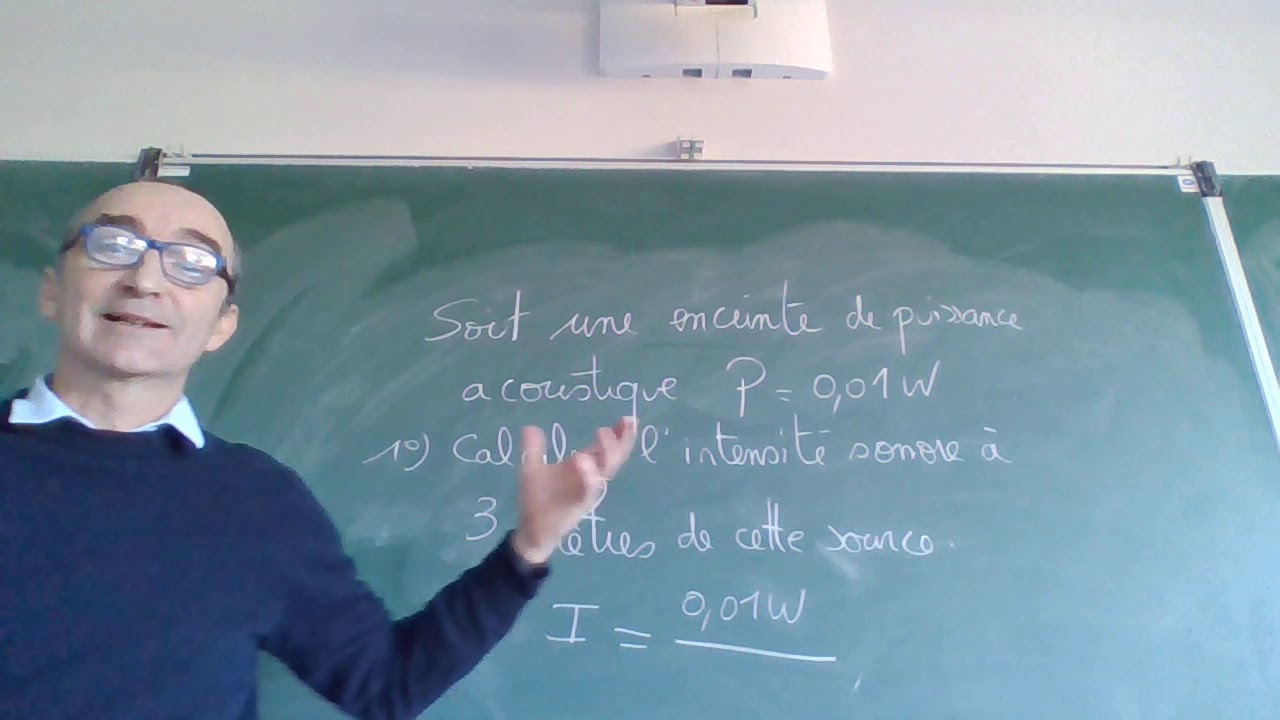 Soit une enceinte de puissance
acoustique P = 0,01 W
1°) l'intensité sonore à
3 de cette source.
I = 0,01 W